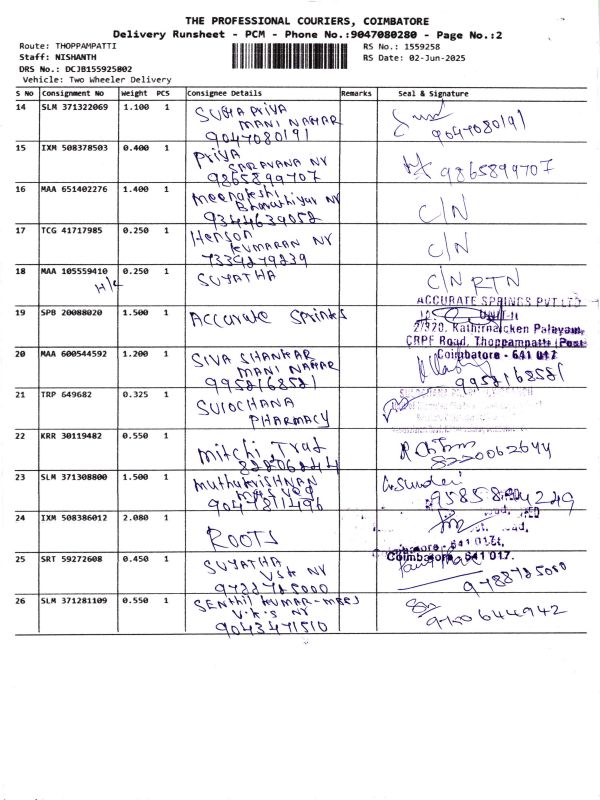 THE PROFESSIONAL COURIERS, COIMBATORE
Delivery Runsheet - PCM - Phone No.:9047080280 - Page No.:2
Route: THOPPAMPATTI
RS No.: 1559258
Staff: NISHANTH
RS Date: 02-Jun-2025
DRS No.: DCJB155925802
Vehicle: Two Wheeler Delivery
S No Consignment No Weight PCS Consignee Details Remarks Seal & Signature
14 SLM 371322069 1.100 1 SUBHA PRIYA
MANI NAGAR
9047080191 9047080191
15 IXM 508378503 0.400 1 Priya
SARAVANA NY
9865899707 9865899707
16 MAA 651402276 1.400 1 Meenakshi
Bharathiyar NY
9344639052 C/N
17 TCG 41717985 0.250 1 Henson
KUMARAN NY
7339279239 C/N
18 MAA 105559410 0.250 1 SUYATHA C/N RTN
H/L
ACCURATE SPRINGS PVT LTD
19 SPB 20088020 1.500 1 Accurate Springs
UNIT-II
2/320, Kathirnaicken Palayam,
CRPF Road, Thoppampatti (Post
Coimbatore - 641 017
20 MAA 600544592 1.200 1 SIVA SHANKAR
MANI NAGAR
9952168521 9952168521
21 TRP 649682 0.325 1 SUIOCHANA
PHARMACY
22 KRR 30119482 0.550 1 Mitchi
8220062644
23 SLM 371308800 1.500 1 MUTHUKRISHNAN
9047811496
24 IXM 508386012 2.080 1 ROOTS
Coimbatore - 641 017.
25 SRT 59272608 0.450 1 SUYATHA
VSK NY
9788725000 9788725000
26 SLM 371281109 0.550 1 SENTHIL KUMAR
V.K.S NY
9043471510 9750644942